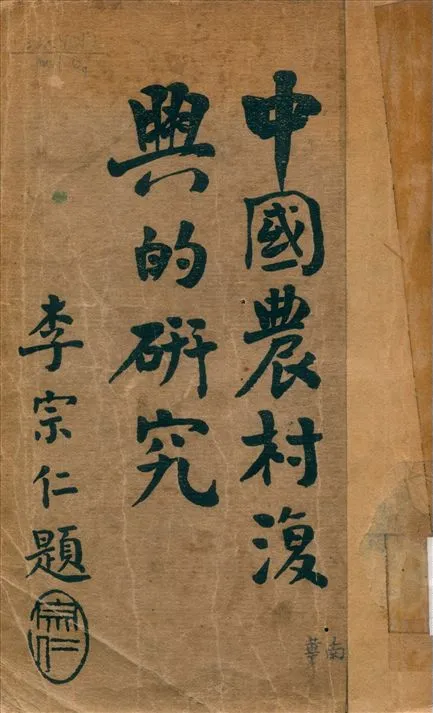 中國農村復
興的研究
李宗仁題
宗仁